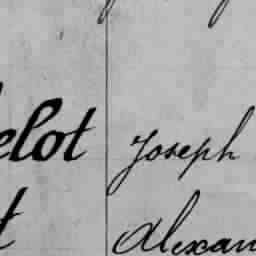 elot Joseph
t Alexan